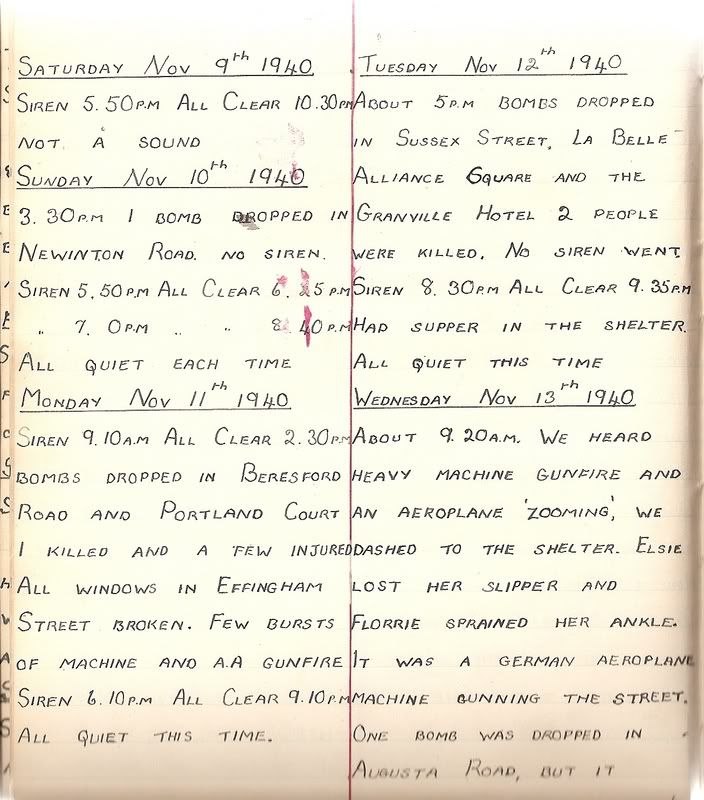 SATURDAY NOV 9th 1940
SIREN 5.50P.M ALL CLEAR 10.30PM
NOT A SOUND
SUNDAY NOV 10th 1940
3.30P.M 1 BOMB DROPPED IN
NEWINTON ROAD. NO SIREN.
SIREN 5.50P.M ALL CLEAR 6.25P.M
" 7. 0PM " " 8.40P.M
ALL QUIET EACH TIME
MONDAY NOV 11th 1940
SIREN 9.10A.M ALL CLEAR 2.30P.M
BOMBS DROPPED IN BERESFORD
ROAD AND PORTLAND COURT
1 KILLED AND A FEW INJURED
ALL WINDOWS IN EFFINGHAM
STREET BROKEN. FEW BURSTS
OF MACHINE AND A.A GUNFIRE
SIREN 6.10P.M ALL CLEAR 9.10P.M
ALL QUIET THIS TIME.
TUESDAY NOV 12th 1940
ABOUT 5P.M BOMBS DROPPED
IN SUSSEX STREET, LA BELLE
ALLIANCE SQUARE AND THE
GRANVILLE HOTEL 2 PEOPLE
WERE KILLED. NO SIREN WENT.
SIREN 8.30P.M ALL CLEAR 9.35P.M
HAD SUPPER IN THE SHELTER.
ALL QUIET THIS TIME
WEDNESDAY NOV 13th 1940
ABOUT 9.20A.M. WE HEARD
HEAVY MACHINE GUNFIRE AND
AN AEROPLANE 'ZOOMING', WE
DASHED TO THE SHELTER. ELSIE
LOST HER SLIPPER AND
FLORRIE SPRAINED HER ANKLE.
IT WAS A GERMAN AEROPLANE
MACHINE GUNNING THE STREET.
ONE BOMB WAS DROPPED IN
AUGUSTA ROAD, BUT IT